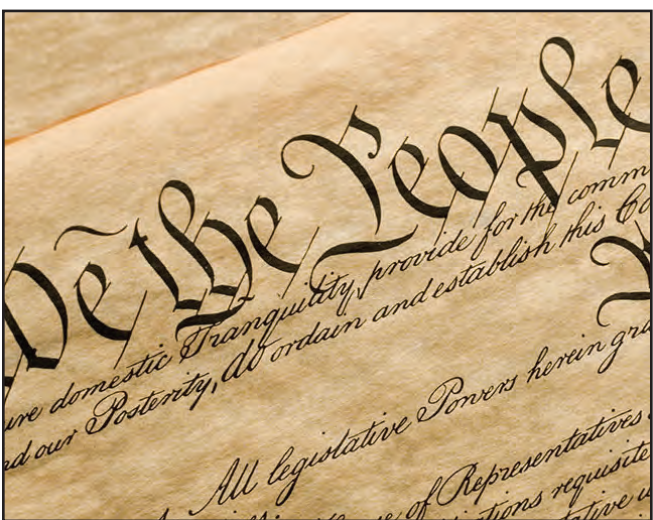 We the People
ure domestic Tranquility, provide for the comm
nd our Posterity, do ordain and establish this Co
All legislative Powers herein gra
of Representatives
tions requisite